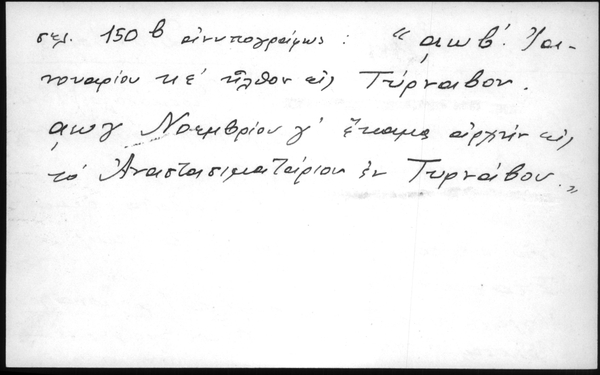 σελ. 150β ἀνυπογράφως : “ ͵αωβ΄. Ἰα-
νουαρίου κε΄ ἦλθον εἰς Τύρναβον.
͵αωγ Νοεμβρίου γ΄ ἔκαμα ἀρχὴν εἰς
τὸ Ἀναστασιματάριον ἐν Τυρνάβου.„